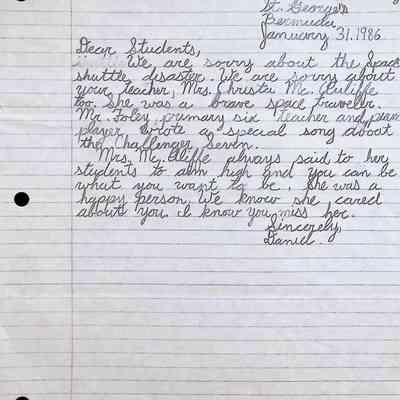 St. George's
Bermuda
January 31, 1986
Dear Students,
We are sorry about the Space
shuttle disaster. We are sorry about
your teacher, Mrs. Christa Mc. Auliffe
too. She was a brave space traveller.
Mr. Foley primary six teacher and piano
player wrote a special song about
the Challenger Seven.
Mrs. Mc. Aliffe always said to her
students to aim high and you can be
what you want to be. She was a
happy person. We know she cared
about you. I know you miss her.
Sincerely,
Daniel.